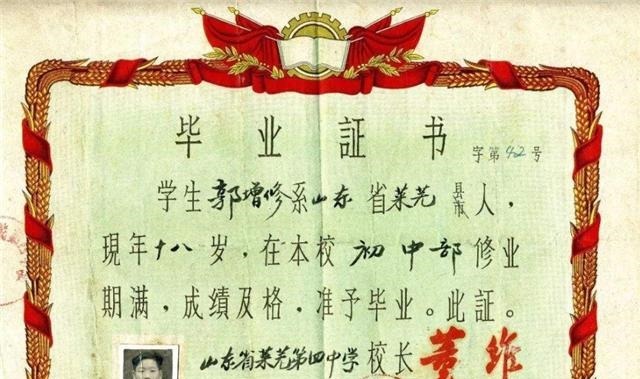 毕业証书
字第42号
学生郭增修系山东省莱芜县市人，
現年十八岁，在本校初中部修业
期满，成绩及格，准予毕业。此証。
山东省莱芜第四中学校长董